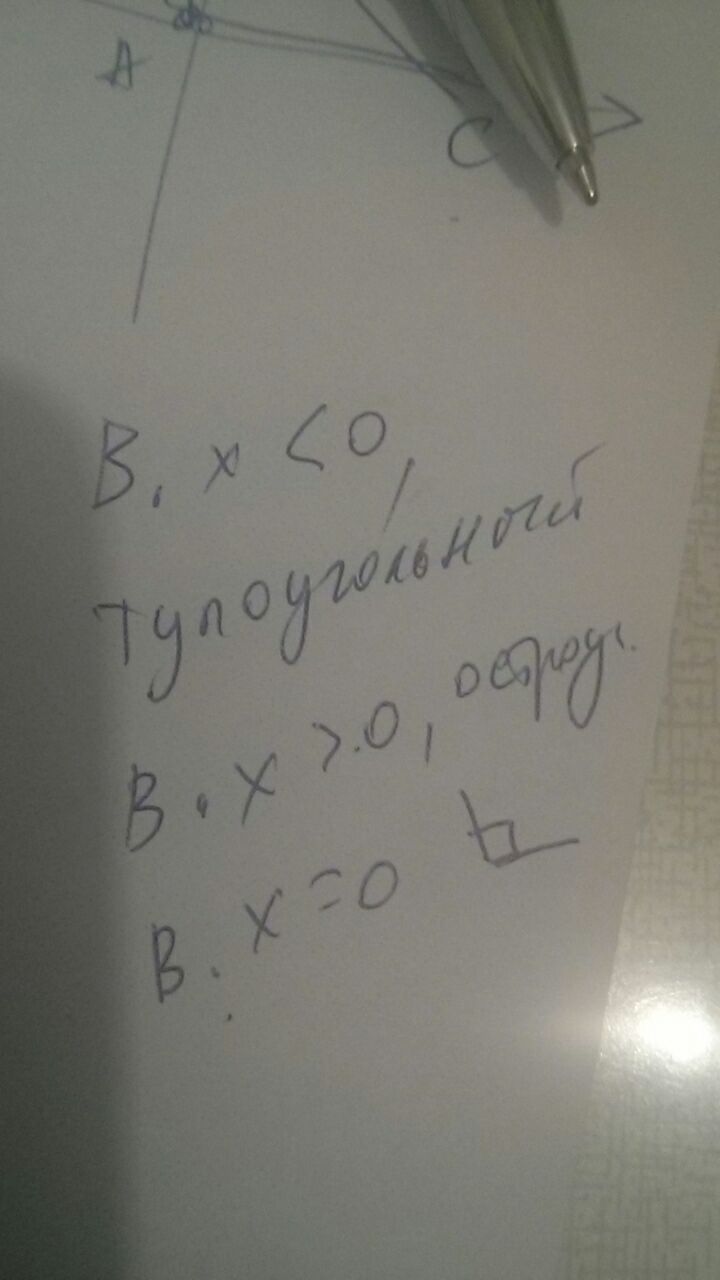 A
C
B. x < 0,
тупоугольный
B. x > 0, остроуг.
B. x = 0